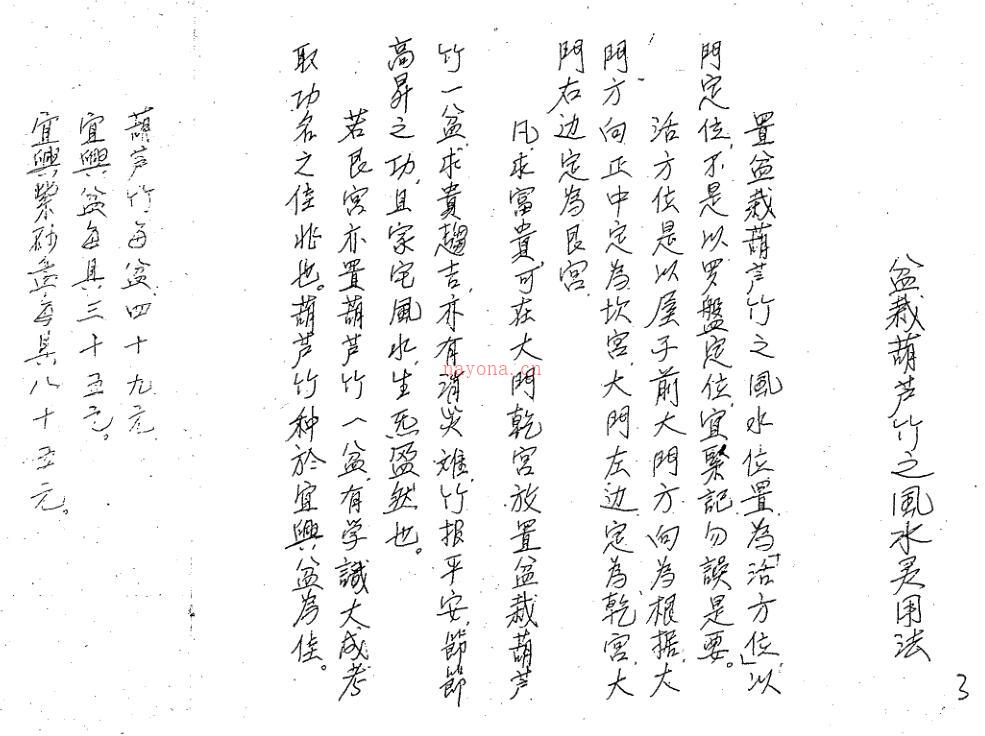 盆栽葫芦竹之風水灵用法
置盆栽葫芦竹之風水位置為「活方位」以
門定位，不是以罗盤定位，宜緊記勿誤是要。
活方位是以屋子前大門方向為根据，大
門方向正中定為坎宮，大門左边定為乾宮，大
門右边定為艮宮，
凡求富貴，可在大門乾宮放置盆栽葫芦
竹一盆，求貴趨吉，亦有消災难，竹报平安，節節
高昇之功，且家宅風水，生炁盈然也。
若艮宮亦置葫芦竹一盆，有学識大成考
取功名之佳兆也。葫芦竹种於宜興盆為佳。
葫芦竹每盆，四十九元
宜興盆每具三十五元。
宜興紫砂盆每具八十五元。
3
nayona.cn